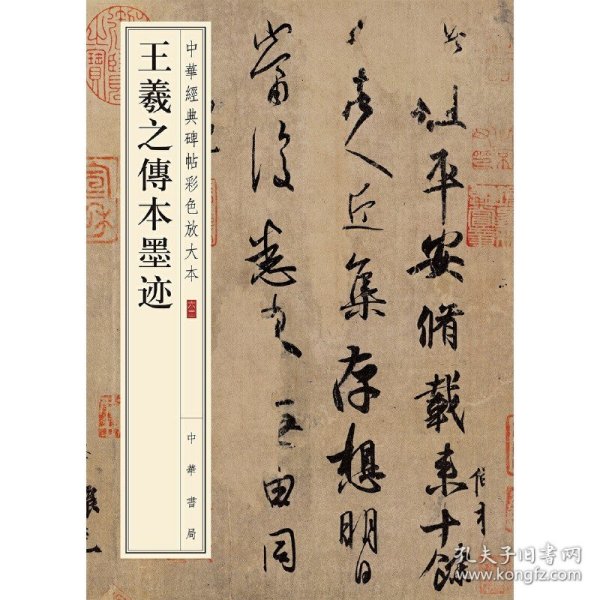 王羲之傳本墨迹
中華經典碑帖彩色放大本
六三
中華書局
粗平安脩載来十餘
諸人近集存想明日
當復悉来無由同
孔夫子旧书网
www.kongfz.com